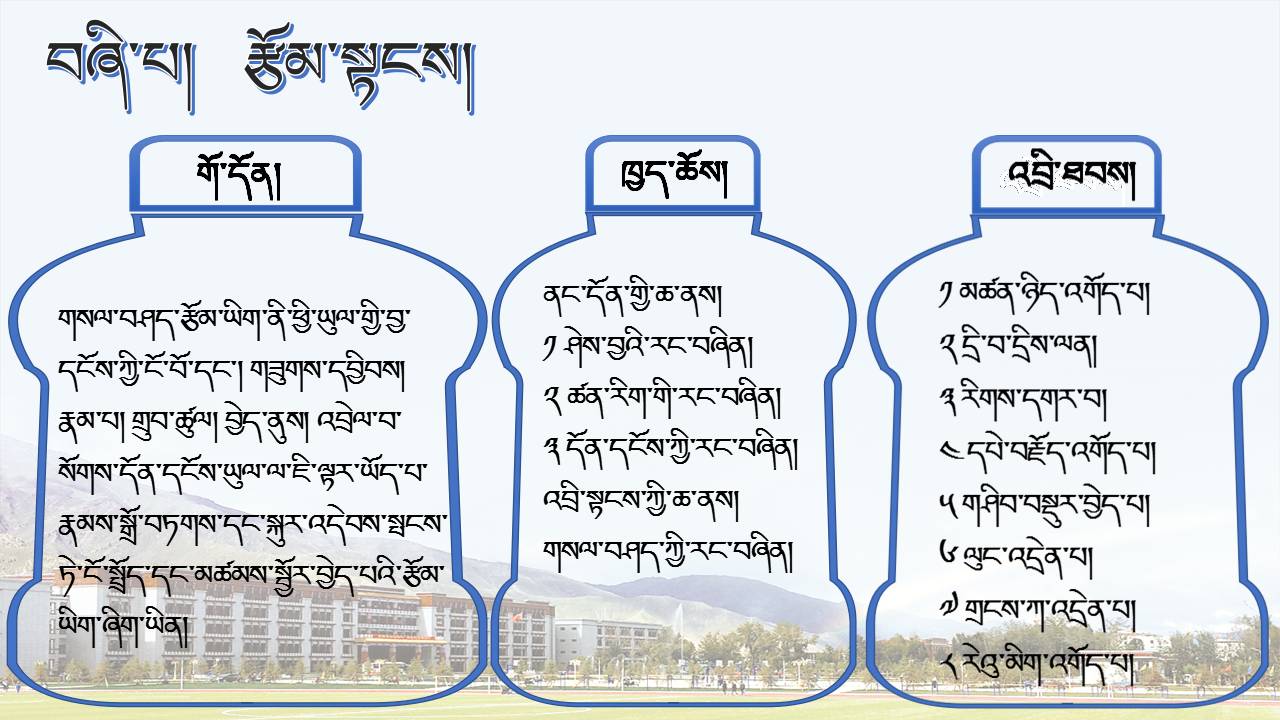 བཞི་པ། རྩོམ་སྟངས།
གོ་དོན།
གསལ་བཤད་རྩོམ་ཡིག་ནི་ཕྱི་ཡུལ་གྱི་བྱ་
དངོས་ཀྱི་ངོ་བོ་དང་། གཟུགས་དབྱིབས།
རྣམ་པ། གྲུབ་ཚུལ། བྱེད་ནུས། འབྲེལ་བ་
སོགས་དོན་དངོས་ཡུལ་ལ་ཇི་ལྟར་ཡོད་པ་
རྣམས་སྒྲོ་བཏགས་དང་སྐུར་འདེབས་སྤངས་
ཏེ་ངོ་སྤྲོད་དང་མཚམས་སྦྱོར་བྱེད་པའི་རྩོམ་
ཡིག་ཞིག་ཡིན།
ཁྱད་ཆོས།
ནང་དོན་གྱི་ཆ་ནས།
༡ ཤེས་བྱའི་རང་བཞིན།
༢ ཚན་རིག་གི་རང་བཞིན།
༣ དོན་དངོས་ཀྱི་རང་བཞིན།
འབྲི་སྟངས་ཀྱི་ཆ་ནས།
གསལ་བཤད་ཀྱི་རང་བཞིན།
འབྲི་ཐབས།
༡ མཚན་ཉིད་འགོད་པ།
༢ དྲི་བ་དྲིས་ལན།
༣ རིགས་དགར་བ།
༤ དཔེ་བརྗོད་འགོད་པ།
༥ གཤིབ་བསྡུར་བྱེད་པ།
༦ ལུང་འདྲེན་པ།
༧ གྲངས་ཀ་འདྲེན་པ།
༨ རེའུ་མིག་འགོད་པ།